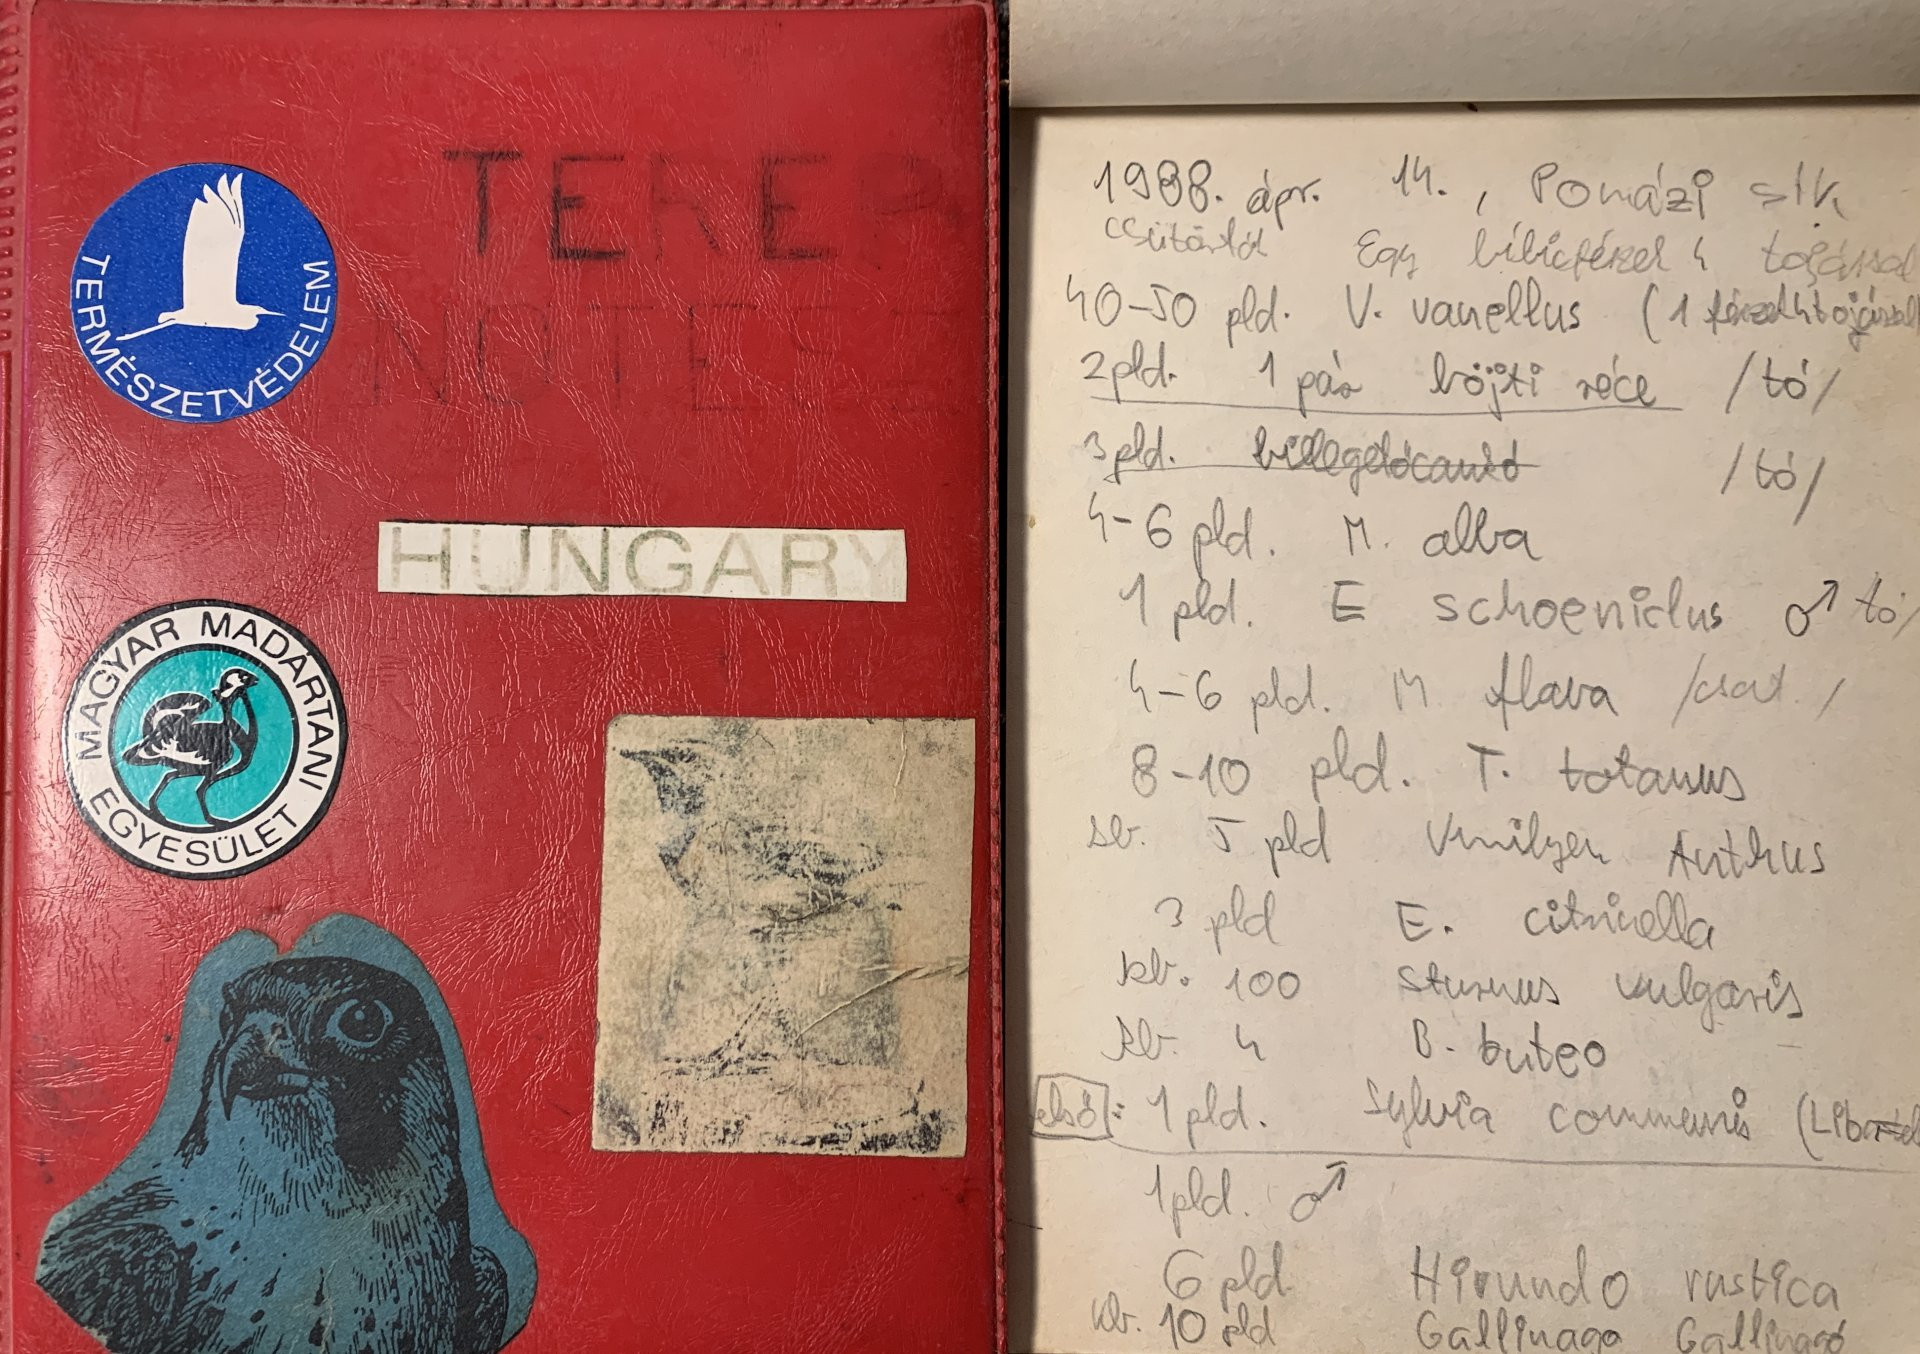 TEREP
NOTESZ
TERMÉSZETVÉDELEM
HUNGARY
MAGYAR MADÁRTANI EGYESÜLET
1988. ápr. 14., Pomázi sík
csütörtök Egy bíbicfészek 4 tojással
40-50 pld. V. vanellus (1 fészek 4 tojással
2 pld. 1 pár böjti réce /tó/
3 pld. billegetőcankó /tó/
4-6 pld. M. alba
1 pld. E schoeniclus ♂ tó/
4-6 pld. M flava /csat./
8-10 pld. T. totanus
kb. 5 pld Vmilyen Anthus
3 pld E. citrinella
kb. 100 Sturnus vulgaris
kb. 4 B. buteo
első: 1 pld. Sylvia communis
1 pld. ♂
6 pld Hirundo rustica
kb. 10 pld Gallinago Gallinago